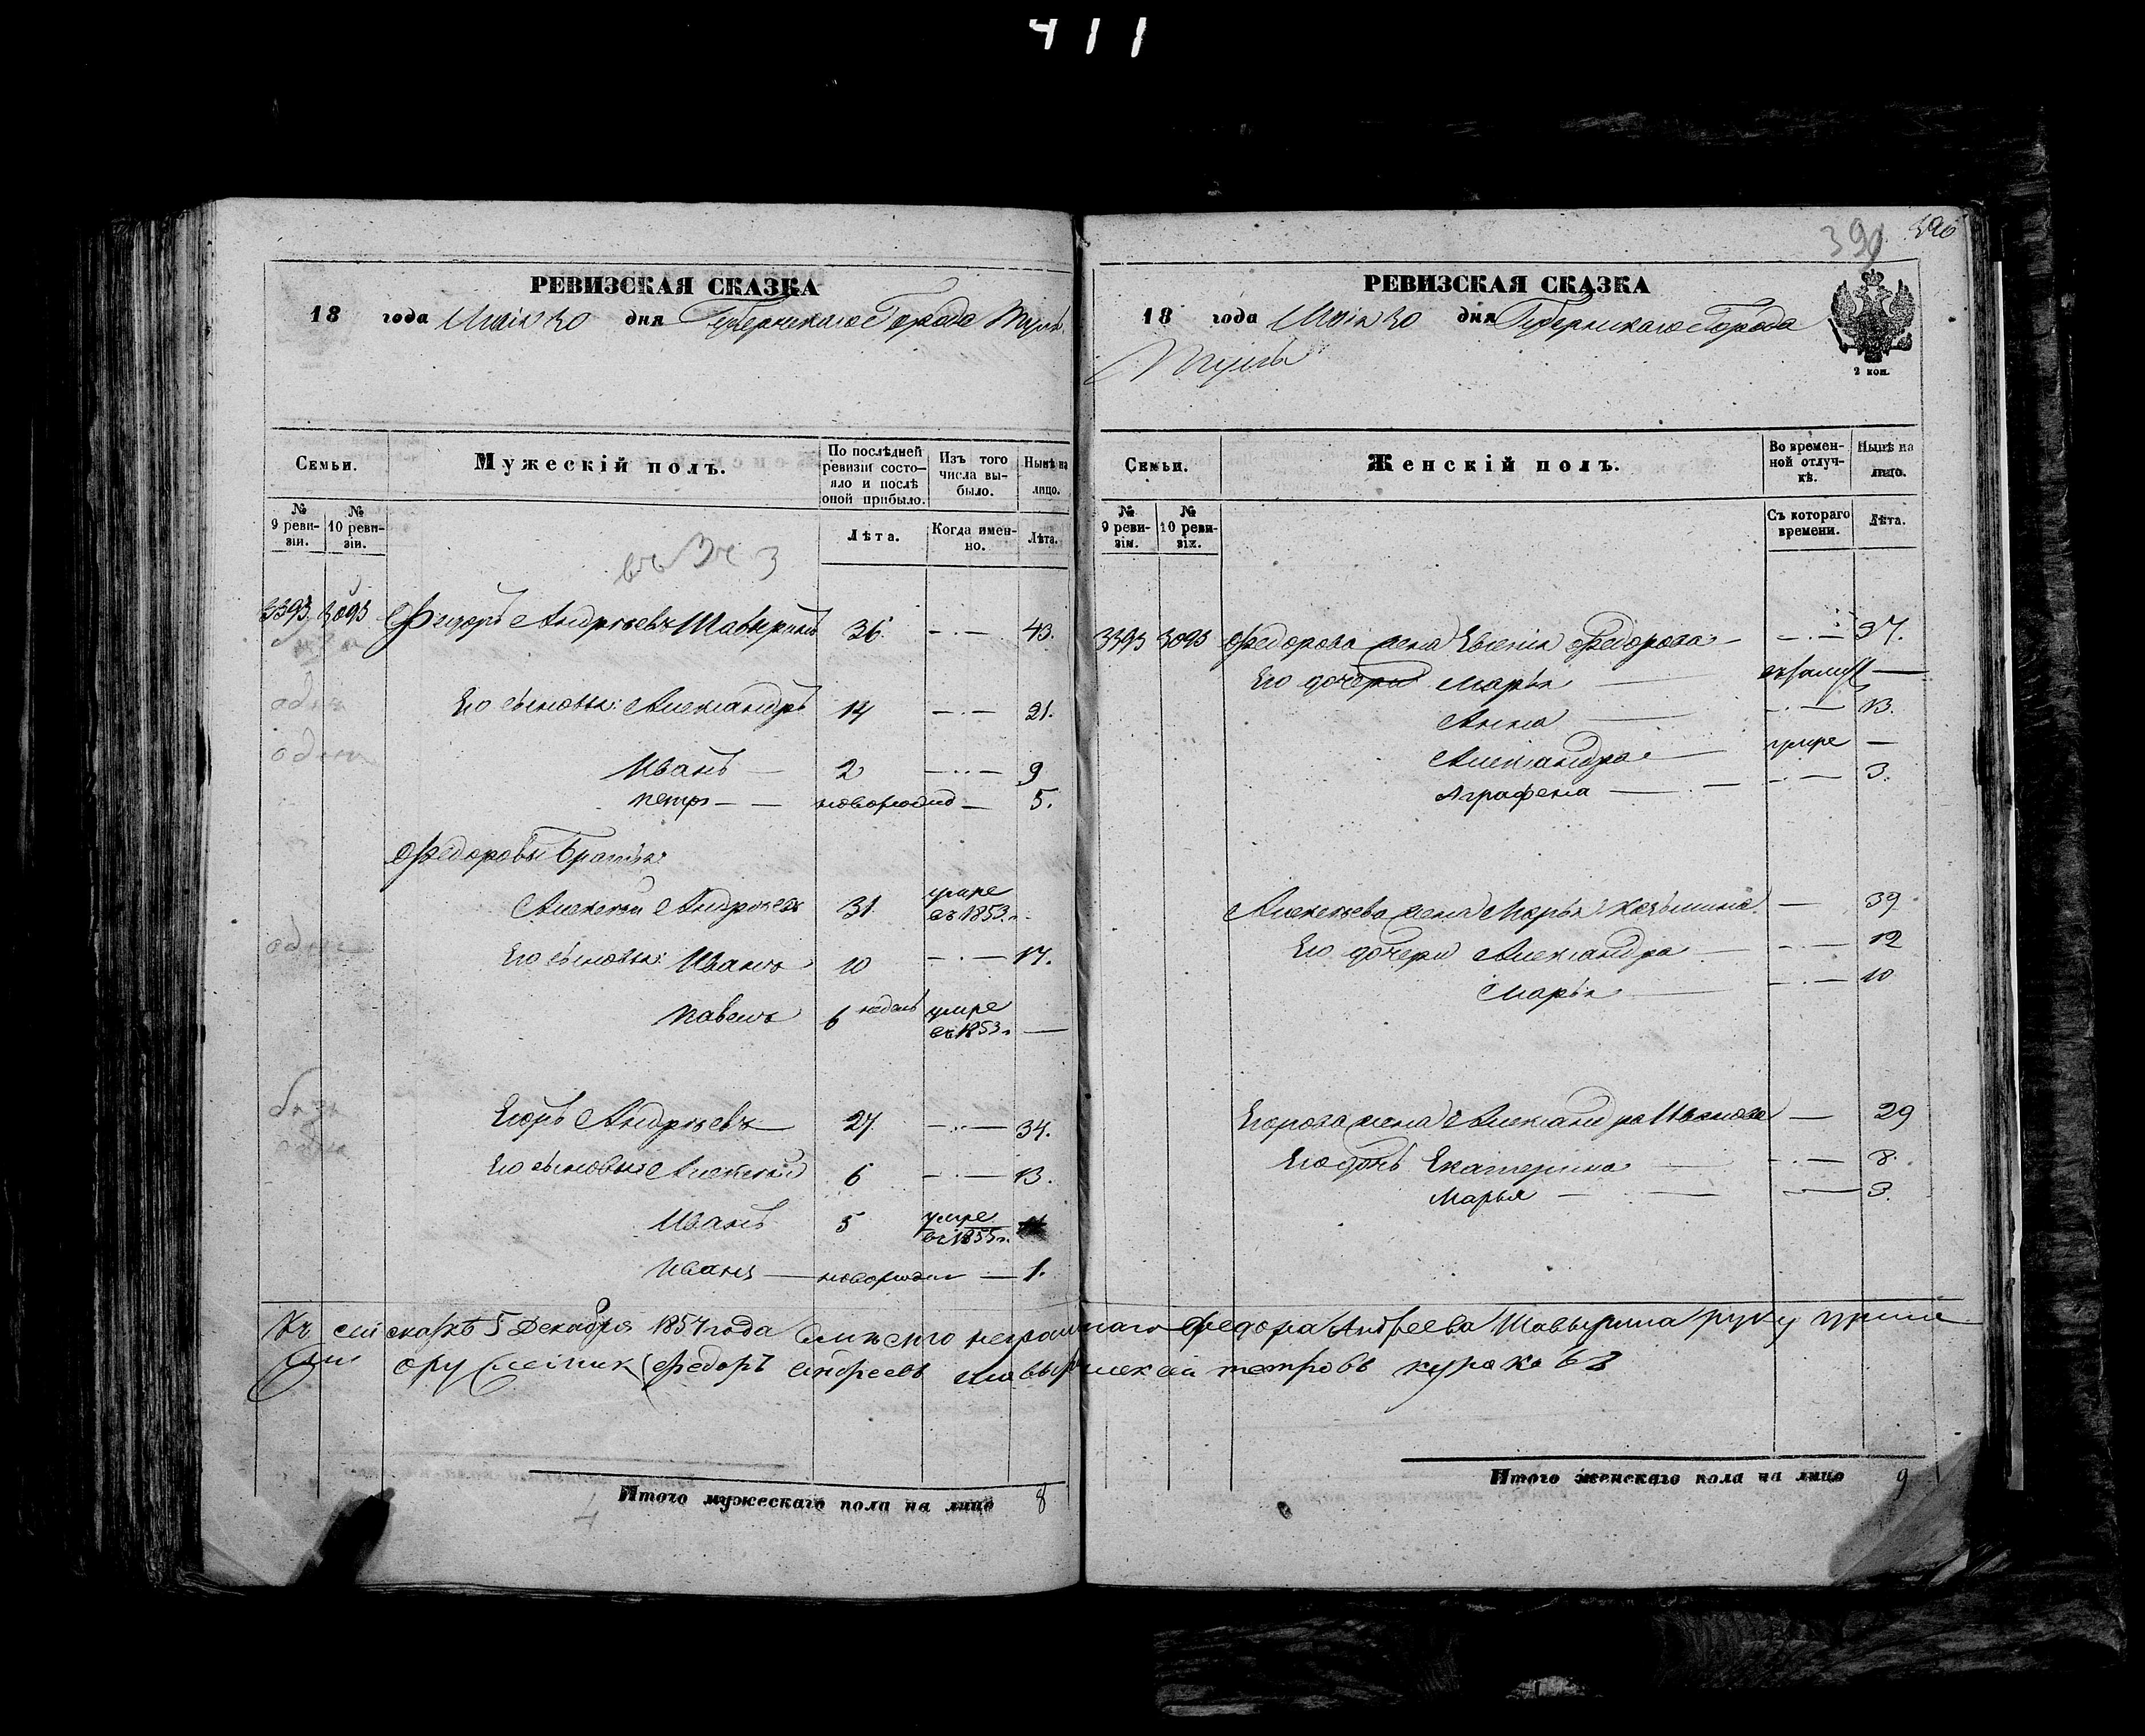 411
РЕВИЗСКАЯ СКАЗКА
18 года Маія 30 дня Губернскаго Города Тулы
Семьи.
Мужескій полъ.
По послѣдней ревизіи состояло и послѣ оной прибыло.
Изъ того числа выбыло.
Нынѣ на лицо.
№ 9 ревизіи.
№ 10 ревизіи.
Лѣта.
Когда именно.
Лѣта.
Федоръ Андреевъ Шавыринъ 36. 43.
Его сыновья: Александръ 14 21.
Иванъ 2 9
Петръ новорожд 5.
Федоровы братья:
Алексей Андреевъ 31. умре въ 1853 г.
Его сыновья: Иванъ 10 17.
Павелъ 6 недель умре въ 1853 г.
Егоръ Андреевъ 27 34.
Его сыновья Алексей 6 13.
Иванъ 5 умре въ 1855 г.
Иванъ новорожден 1.
Итого мужескаго пола на лицо 8
390
РЕВИЗСКАЯ СКАЗКА
18 года Маія 30 дня Губернскаго Города
Тулы
2 коп.
Семьи.
Женскій полъ.
Во временной отлучкѣ.
Нынѣ на лицо.
№ 9 ревизіи.
№ 10 ревизіи.
Съ котораго времени.
Лѣта.
Федорова жена Евгенія Федорова 37.
Его дочери Марья
Анна 13.
Александра умре
Аграфена 3.
Алексеева жена Марья 39
Его дочери Александра 12
Марья 10
Егорова жена Александра Иванова 29
Его дочь Екатерина 8.
Марья 3.
Къ сей скаске 5 Декабря 1857 года вместо неграмотнаго Федора Андреева Шавырина руку прило
оружейник Федоръ Андреевъ Петровъ Кураковъ
Итого женскаго пола на лицо 9